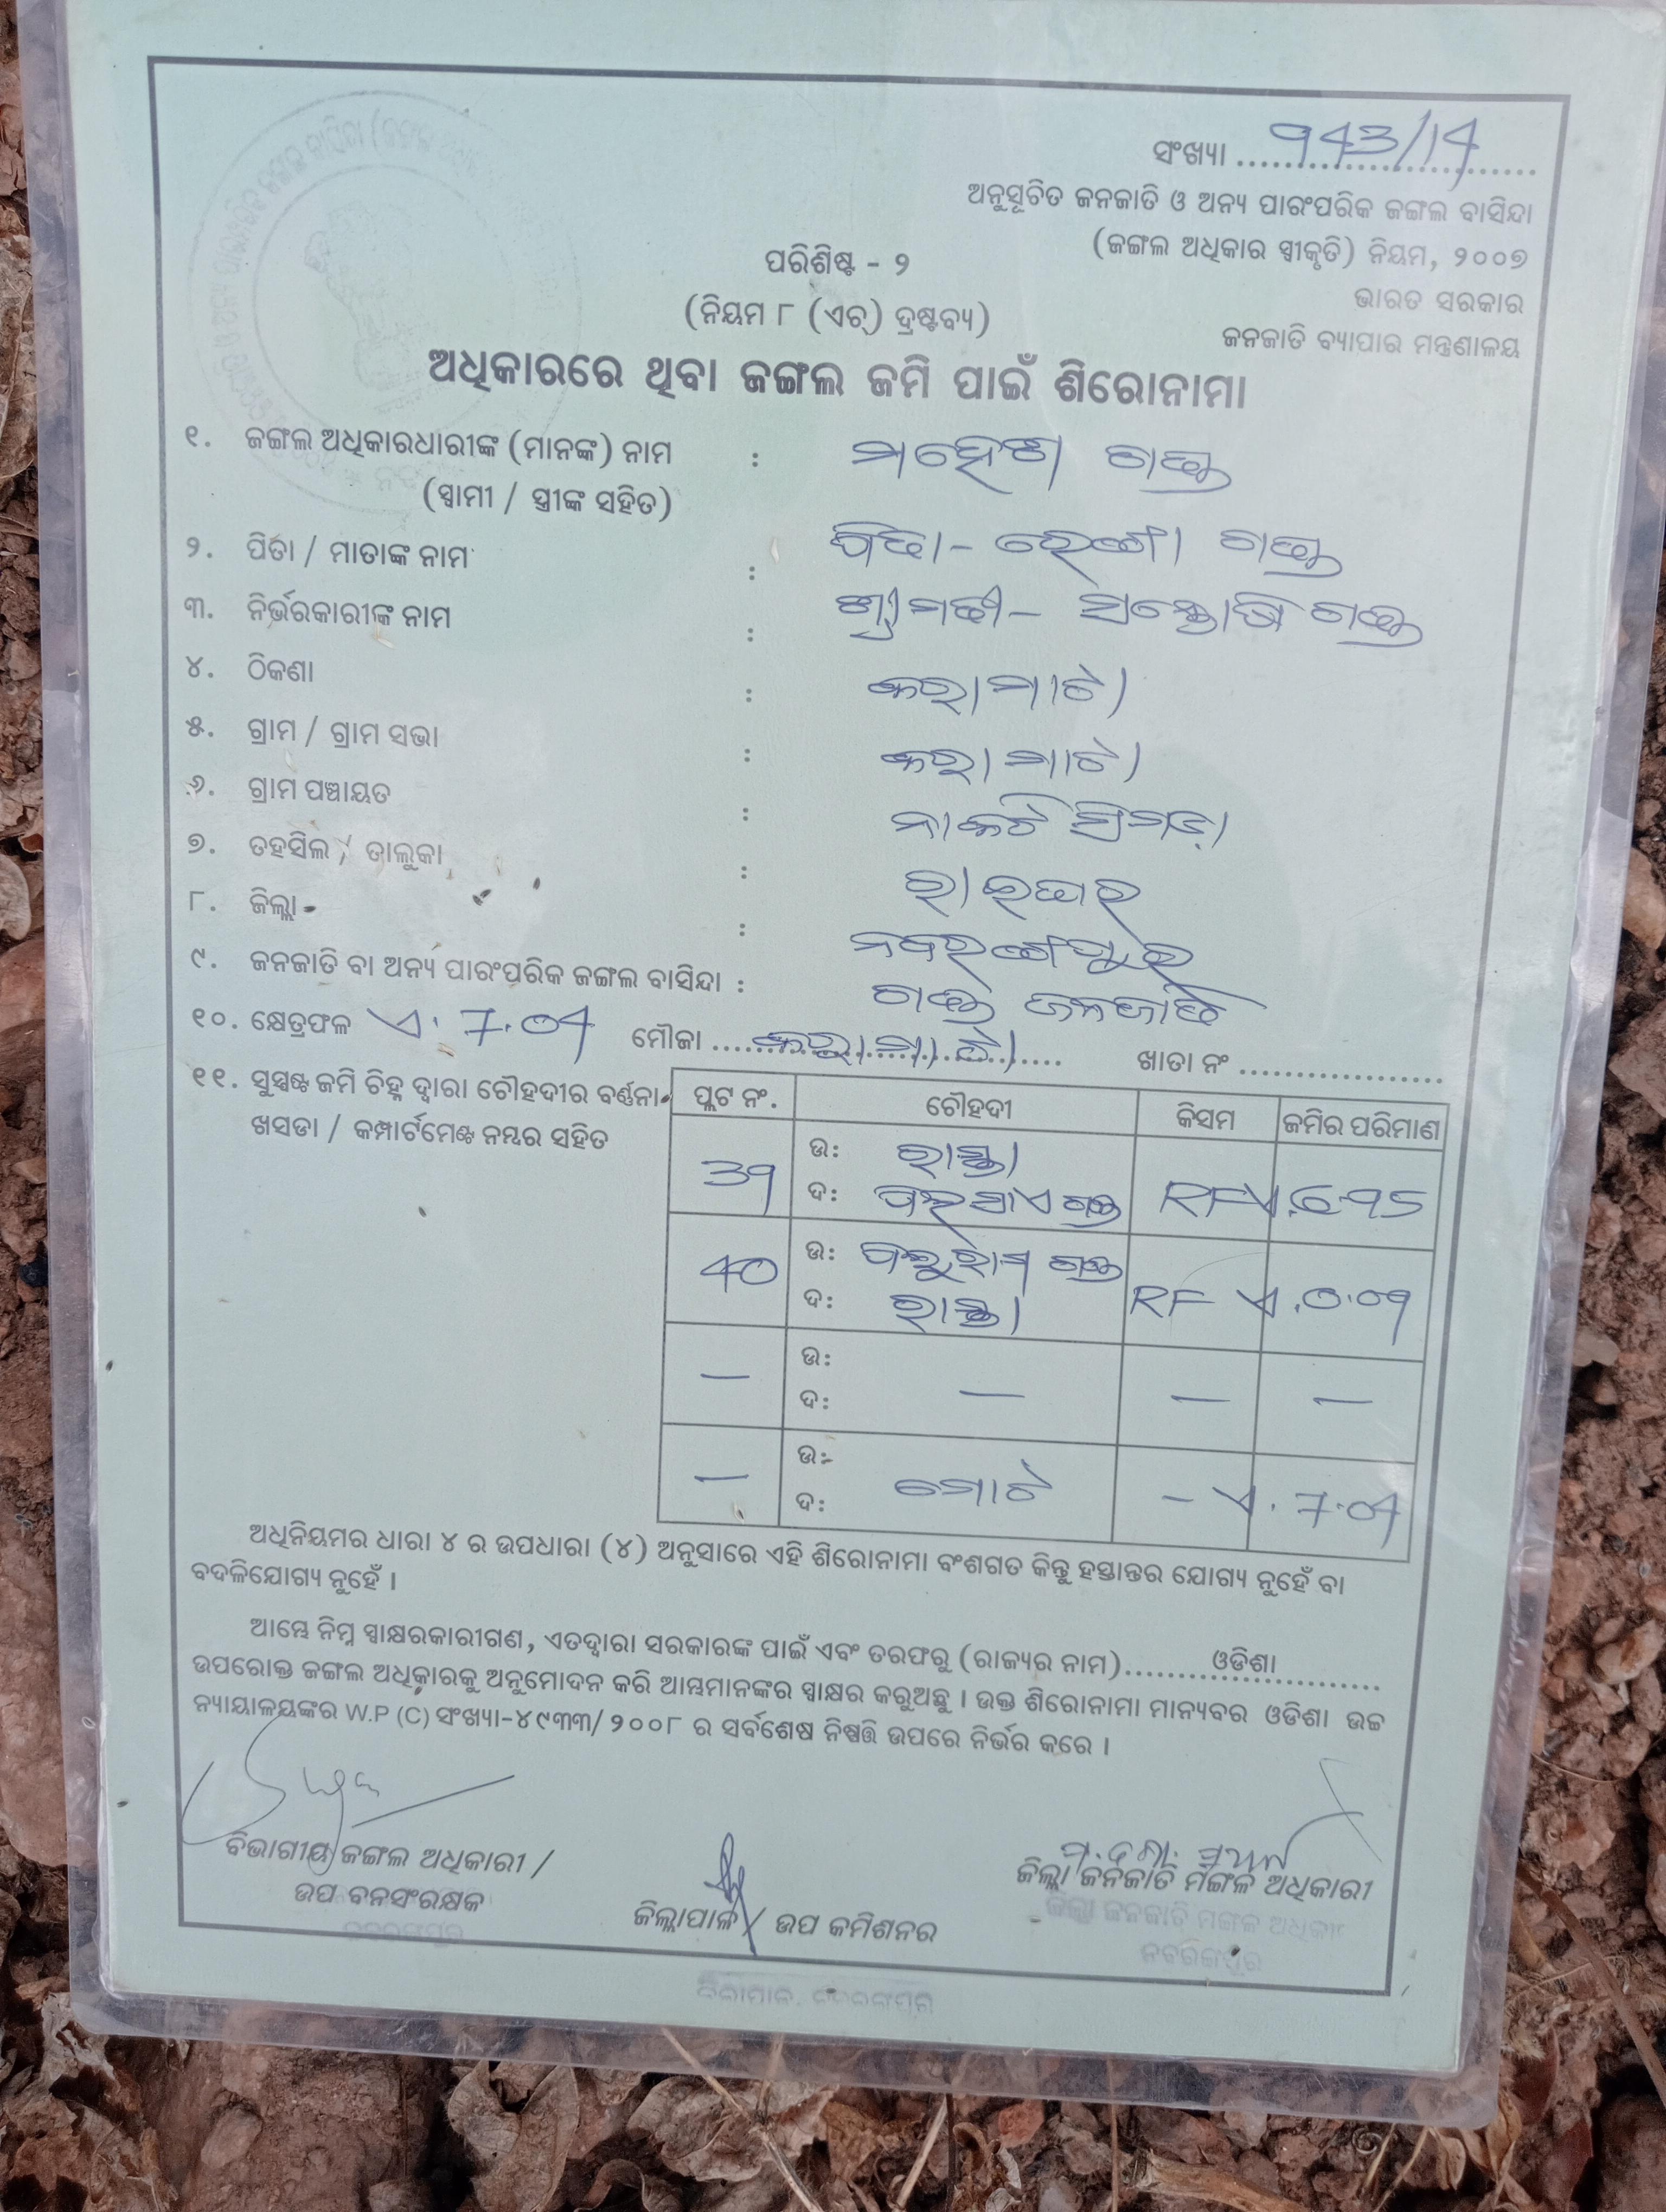 ସଂଖ୍ୟା 943/14
ଅନୁସୂଚିତ ଜନଜାତି ଓ ଅନ୍ୟ ପାରଂପରିକ ଜଙ୍ଗଲ ବାସିନ୍ଦା
(ଜଙ୍ଗଲ ଅଧିକାର ସ୍ୱୀକୃତି) ନିୟମ, ୨୦୦୭
ଭାରତ ସରକାର
ଜନଜାତି ବ୍ୟାପାର ମନ୍ତ୍ରଣାଳୟ
ପରିଶିଷ୍ଟ - ୨
(ନିୟମ ୮ (ଏଚ୍) ଦ୍ରଷ୍ଟବ୍ୟ)
ଅଧିକାରରେ ଥିବା ଜଙ୍ଗଲ ଜମି ପାଇଁ ଶିରୋନାମା
୧. ଜଙ୍ଗଲ ଅଧିକାରଧାରୀଙ୍କ (ମାନଙ୍କ) ନାମ : ମହେଶ ଗଣ୍ଡ
(ସ୍ୱାମୀ / ସ୍ତ୍ରୀଙ୍କ ସହିତ)
୨. ପିତା / ମାତାଙ୍କ ନାମ : ପିତା - ଗଣ୍ଡ
୩. ନିର୍ଭରକାରୀଙ୍କ ନାମ : ଶ୍ରୀମତୀ - ସନ୍ତୋଷି ଗଣ୍ଡ
୪. ଠିକଣା : କରାମାଟେ।
୫. ଗ୍ରାମ / ଗ୍ରାମ ସଭା : କରାମାଟେ।
୬. ଗ୍ରାମ ପଞ୍ଚାୟତ : ନାକଟି ସିମଡ଼ା
୭. ତହସିଲ / ତାଲୁକା : ରାଇଘର
୮. ଜିଲ୍ଲା : ନବରଙ୍ଗପୁର
୯. ଜନଜାତି ବା ଅନ୍ୟ ପାରଂପରିକ ଜଙ୍ଗଲ ବାସିନ୍ଦା : ଗଣ୍ଡ ଜନଜାତି
୧୦. କ୍ଷେତ୍ରଫଳ ଏ. 7.04 ମୌଜା କରାମାଟେ। ଖାତା ନଂ
୧୧. ସୁସ୍ପଷ୍ଟ ଜମି ଚିହ୍ନ ଦ୍ୱାରା ଚୌହଦୀର ବର୍ଣ୍ଣନା
ଖସଡା / କମ୍ପାର୍ଟମେଣ୍ଟ ନମ୍ବର ସହିତ
ପ୍ଲଟ ନଂ. ଚୌହଦୀ କିସମ ଜମିର ପରିମାଣ
39 ଉ: ରାସ୍ତା RF ଏ.6.95
ଦ: ଗଣ୍ଡ
40 ଉ: ଗଣ୍ଡ RF ଏ.0.09
ଦ: ରାସ୍ତା
— ଉ:
ଦ: — — —
— ଉ:
ଦ: ମୋଟ — ଏ. 7.04
ଅଧିନିୟମର ଧାରା ୪ ର ଉପଧାରା (୪) ଅନୁସାରେ ଏହି ଶିରୋନାମା ବଂଶଗତ କିନ୍ତୁ ହସ୍ତାନ୍ତର ଯୋଗ୍ୟ ନୁହେଁ ବା
ବଦଳିଯୋଗ୍ୟ ନୁହେଁ ।
ଆମ୍ଭେ ନିମ୍ନ ସ୍ୱାକ୍ଷରକାରୀଗଣ, ଏତଦ୍ୱାରା ସରକାରଙ୍କ ପାଇଁ ଏବଂ ତରଫରୁ (ରାଜ୍ୟର ନାମ) ଓଡିଶା
ଉପରୋକ୍ତ ଜଙ୍ଗଲ ଅଧିକାରକୁ ଅନୁମୋଦନ କରି ଆମ୍ଭମାନଙ୍କର ସ୍ୱାକ୍ଷର କରୁଅଛୁ । ଉକ୍ତ ଶିରୋନାମା ମାନ୍ୟବର ଓଡିଶା ଉଚ୍ଚ
ନ୍ୟାୟାଳୟଙ୍କର W.P (C) ସଂଖ୍ୟା-୪୯୩୩/୨୦୦୮ ର ସର୍ବଶେଷ ନିଷ୍ପତ୍ତି ଉପରେ ନିର୍ଭର କରେ ।
ବିଭାଗୀୟ ଜଙ୍ଗଲ ଅଧିକାରୀ /
ଉପ ବନସଂରକ୍ଷକ
ଜିଲ୍ଲାପାଳ / ଉପ କମିଶନର
ଜିଲ୍ଲା ଜନଜାତି ମଙ୍ଗଳ ଅଧିକାରୀ
ଜିଲ୍ଲା ଜନଜାତି ମଙ୍ଗଳ ଅଧିକାରୀ
ନବରଙ୍ଗପୁର